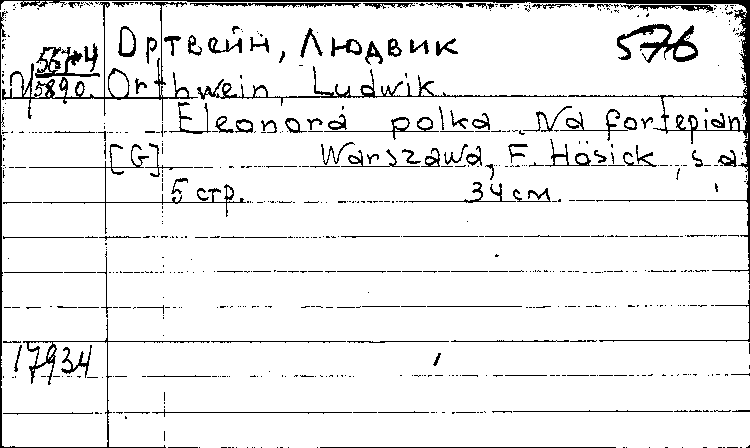 Ортвейн, Людвик 576
5890. Orthwein, Ludwik.
Eleonora polka. Na fortepian
[G] Warszawa, F. Hösick, s. a.
5 стр. 34 см.
17934